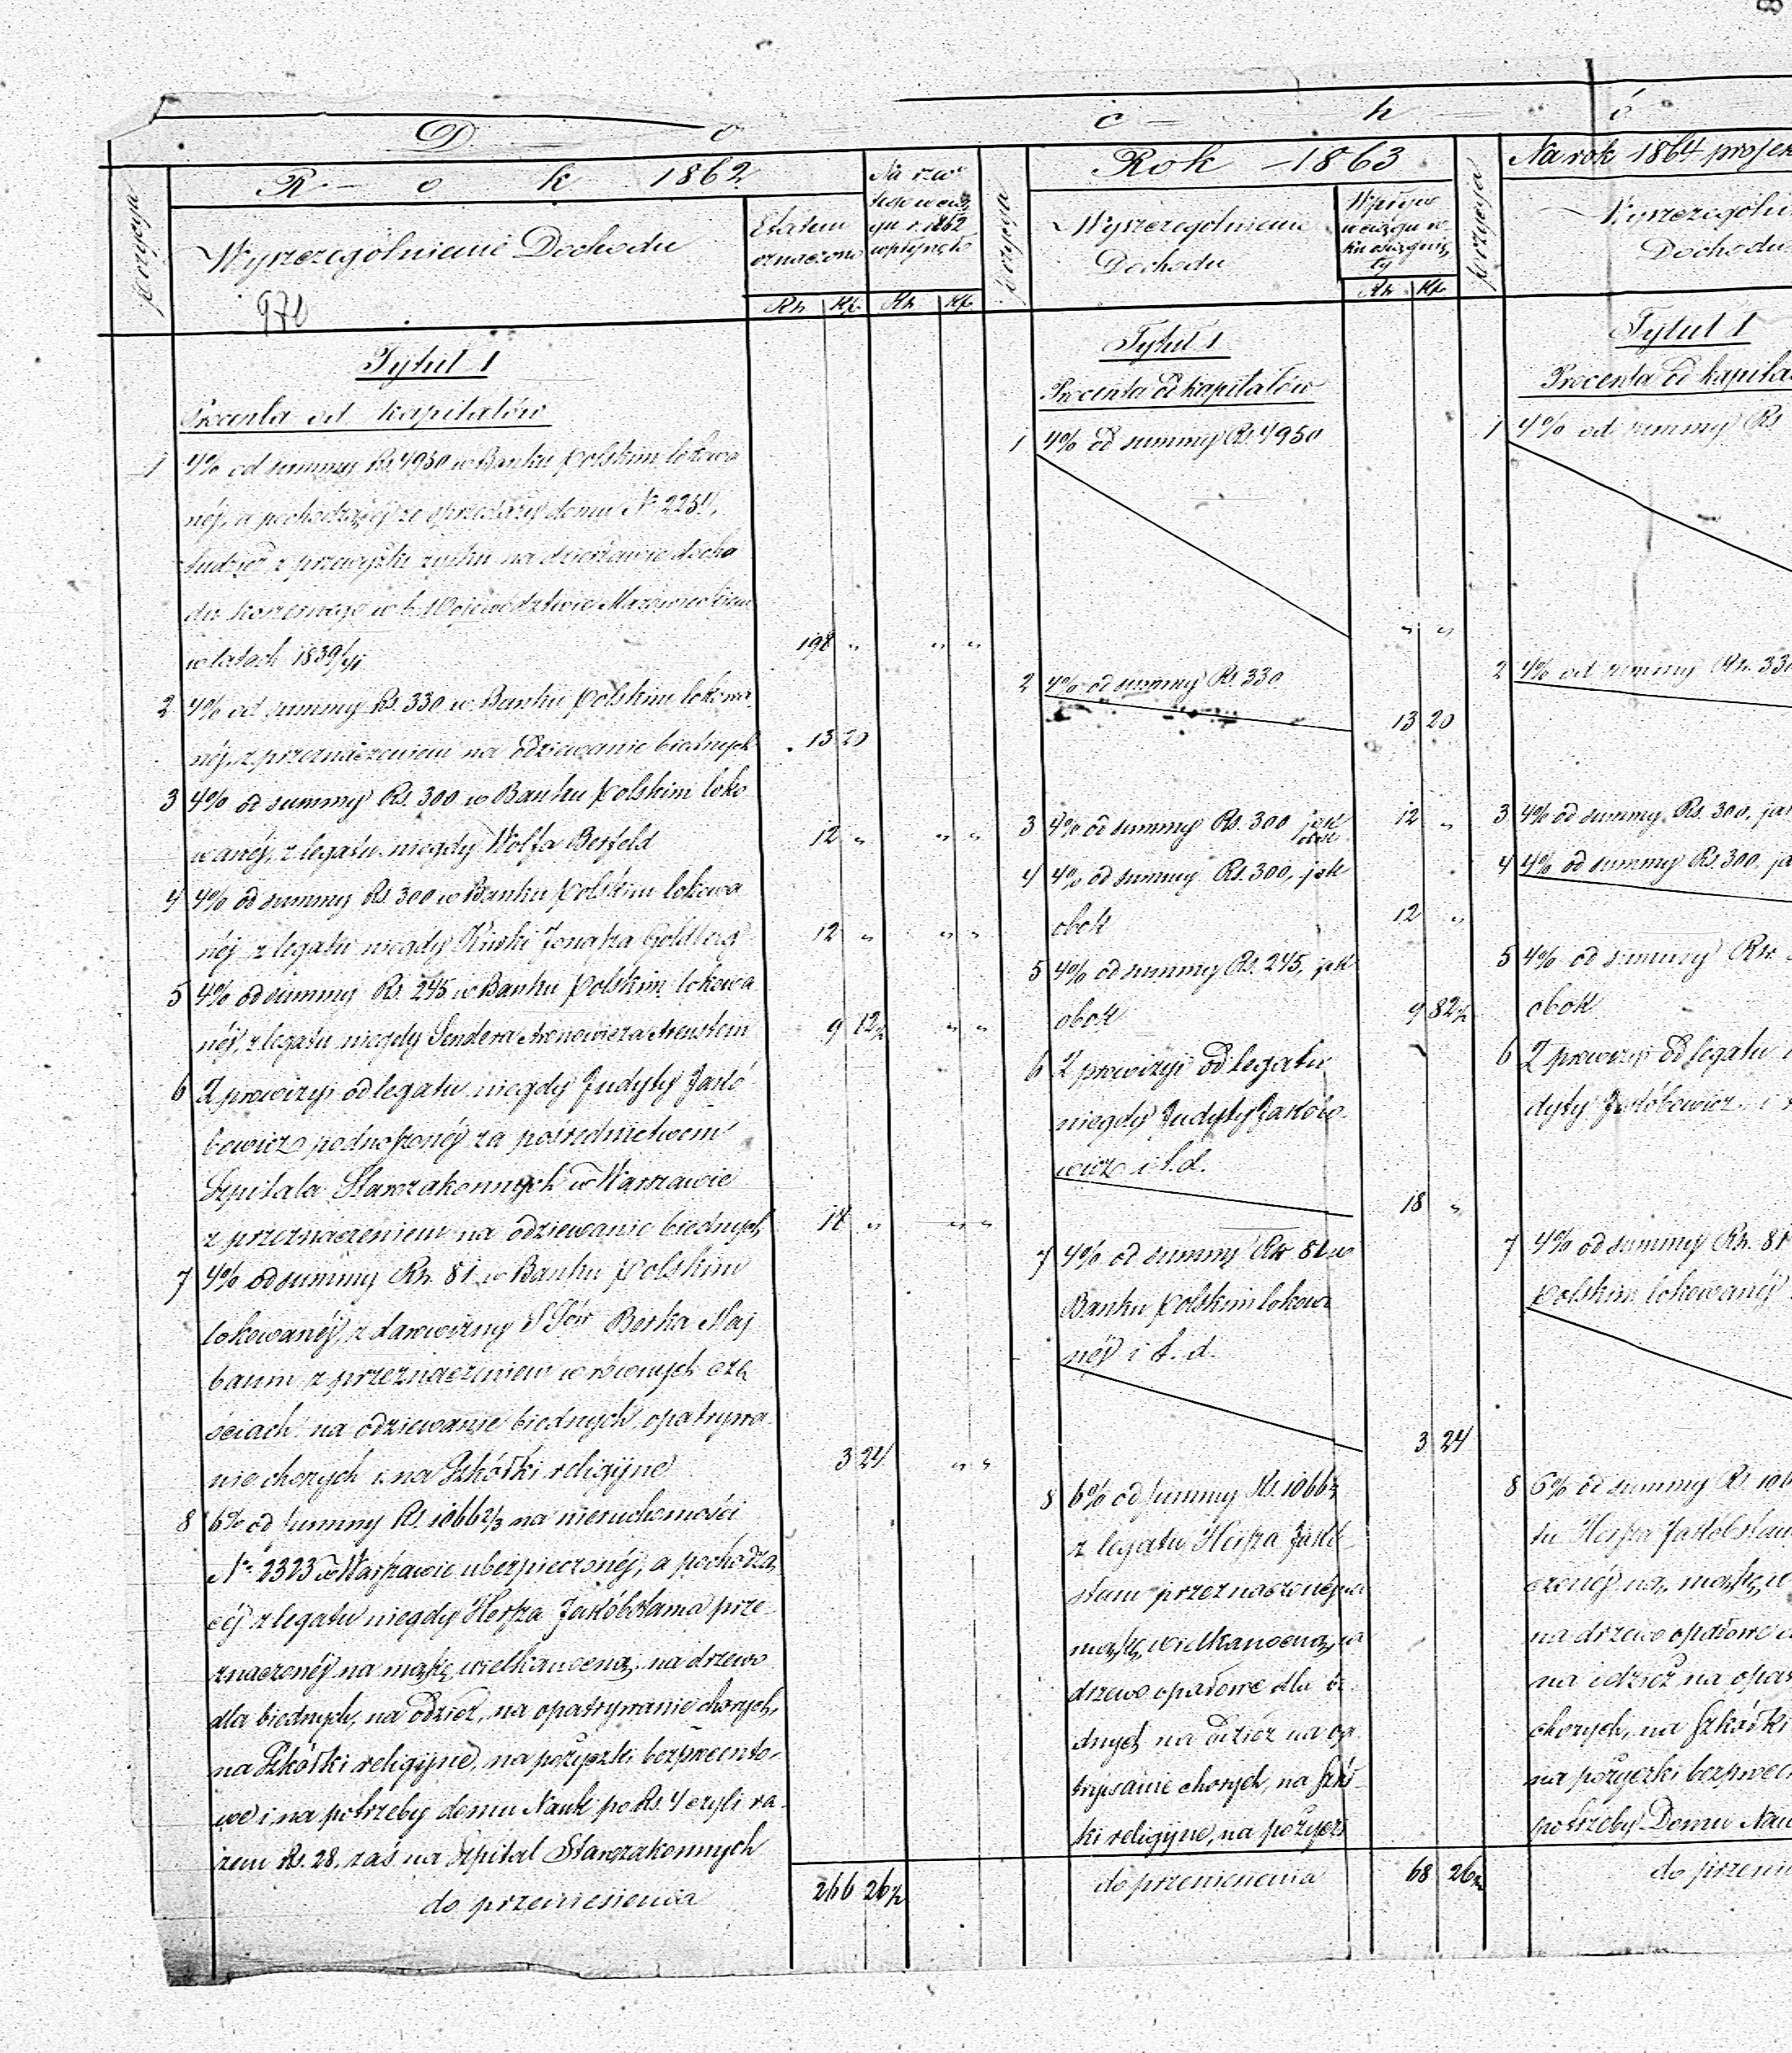 D o c h ó
R o k 1862
pozycya
Wyszczególnienie Dochodu
970
Etatem
oznaczono
Rs Kp.
Na rzecz
tego w cią
gu r. 1862
wpłynęło
Rs Kp.
Tytuł 1
Procenta od kapitałów
1 4% od summy Rs 4950 w Banku Polskim lokowa
néj, a pochodzącéj ze sprzedaży domu Nr
tudzież z przewyżki zysku na dzierżawie docho
du koszernego w b. Województwie Mazowieckiem
w latach 1839/41 198 "  " "
2 4% od summy Rs. 330 w Banku Polskim lokowa
néj, z przeznaczeniem na odziewanie biednych 13 20
3 4% od summy Rs. 300 w Banku Polskim loko
wanéj, z legatu niegdy Wolfa 12 " " "
4 4% od summy Rs 300 w Banku Polskim lokowa
néj z legatu niegdy Goldberg 12 " " "
5 4% od summy Rs. 245 w Banku Polskim lokowa
néj, z legatu niegdy Sendera Aronowicza 9 12½ " "
6 Z prowizyi od legatu niegdy Judyty Jakó
bowicz podnoszonéj za pośrednictwem
Szpitala Starozakonnych w Warszawie
z przeznaczeniem na odziewanie biednych 18 " " "
7 4% od summy Rs. 81 w Banku Polskim
lokowanéj, z darowizny Berka
baum z przeznaczeniem w równych czę
ściach na odziewanie biednych, opatrywa
nie chorych i na Szkółki religijne 3 24 " "
8 6% od summy Rs. 1066⅔ na nieruchomości
Nr 2323 w Warszawie ubezpieczonéj, a pochodzą
céj z legatu niegdy Hersza Jakóbsłama prze
znaczonéj na mąkę wielkanocną, na drzewo
dla biednych, na odzież, na opatrywanie chorych,
na Szkółki religijne, na pożyczki bezprocento
we i na potrzeby domu Nauk po Rs. 4 czyli ra
zem Rs. 28, zaś na Szpital Starozakonnych
do przeniesienia 266 26½
pozycya
Rok 1863
Wyszczególnienie
Dochodu
Wpływ
w ciągu ro
ku osiągnię
ty
Rs. Kp.
Tytuł 1
Procenta od kapitałów
1 4% od summy Rs. 4950 " "
2 4% od summy Rs. 330 13 20
3 4% od summy Rs. 300 jak
obok 12 "
4 4% od summy Rs. 300, jak
obok 12 "
5 4% od summy Rs. 245, jak
obok 9 82½
6 Z prowizyi od legatu
niegdy Judyty Jakóbo
wicz i t.d. 18 "
7 4% od summy Rs 81 w
Banku Polskim lokowa
néj i t. d. 3 24
8 6% od summy Rs. 1066⅔
z legatu Hersza Jakób
słam przeznaczonéj na
mąkę wielkanocną, na
drzewo opałowe dla bie
dnych na odzież na opa
trywanie chorych, na Szkół
ki religijne, na pożyczki
do przeniesienia 68 26½
pozycya
Na rok 1864 projek
Wyszczególni
Dochodu
Tytuł 1
Procenta od kapita
1 4% od summy Rs
2 4% od summy Rs. 330
3 4% od summy Rs. 300, jak
4 4% od summy Rs. 300, ja
5 4% od summy Rs.
obok
6 Z prowizyi od legatu
dyty Jakóbowicz i
7 4% od summy Rs. 81
Polskim lokowanéj
8 6% od summy Rs. 106
tu Hersza Jakóbsłam
czonéj na mąkę w
na drzewo opałowe
na odzież na opat
chorych, na Szkółki
na pożyczki bezproce
potrzeby Domu Nau
do przenie